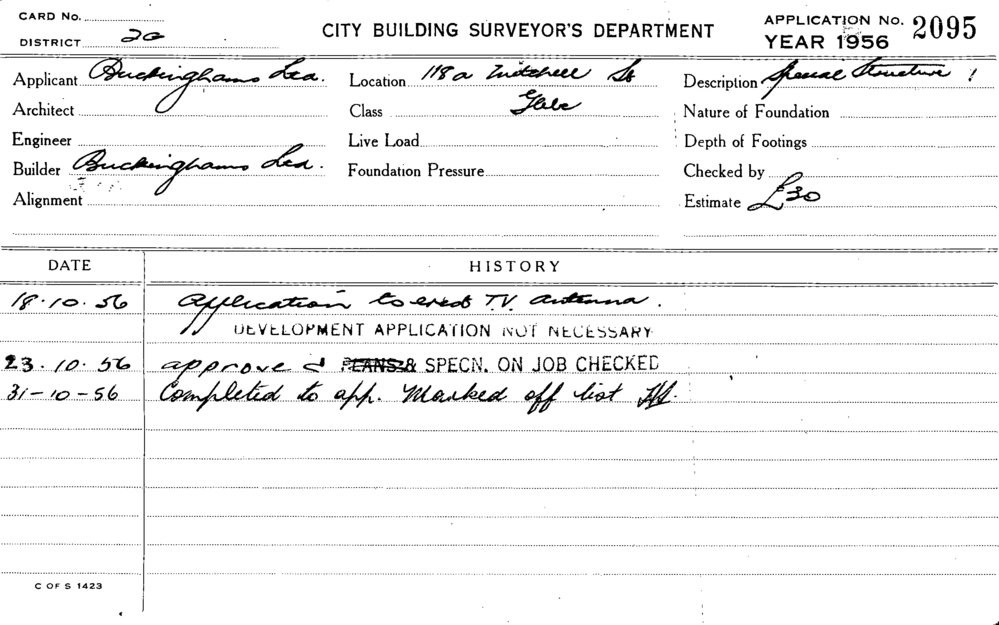 CARD No.
DISTRICT 2G
CITY BUILDING SURVEYOR'S DEPARTMENT
APPLICATION No. 2095
YEAR 1956
Applicant Buckinghams Ltd.
Location 118a Mitchell St
Description Special Structure
Architect
Class Glebe
Nature of Foundation
Engineer
Live Load
Depth of Footings
Builder Buckinghams Ltd.
Foundation Pressure
Checked by
Alignment
Estimate £30
DATE HISTORY
18.10.56 Application to erect T.V. antenna.
DEVELOPMENT APPLICATION NOT NECESSARY
23.10.56 approved PLANS & SPECN. ON JOB CHECKED
31-10-56 Completed to app. Marked off list
C OF S 1423